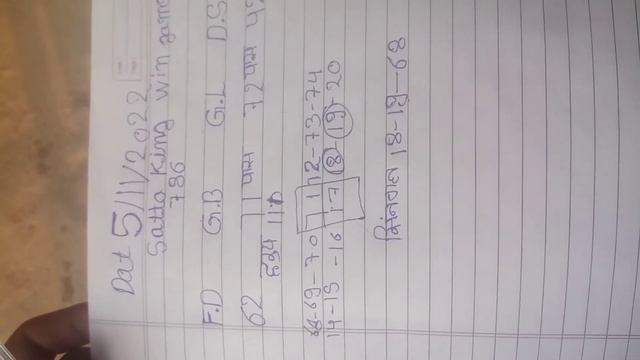 Dat 5/11/2022
Satta King win game
786
F.D G.B G.L D.S
62 71 पास 72 पास
11
68-69-70 71 72-73-74
14-15-16 17 18-19-20
18-19-68